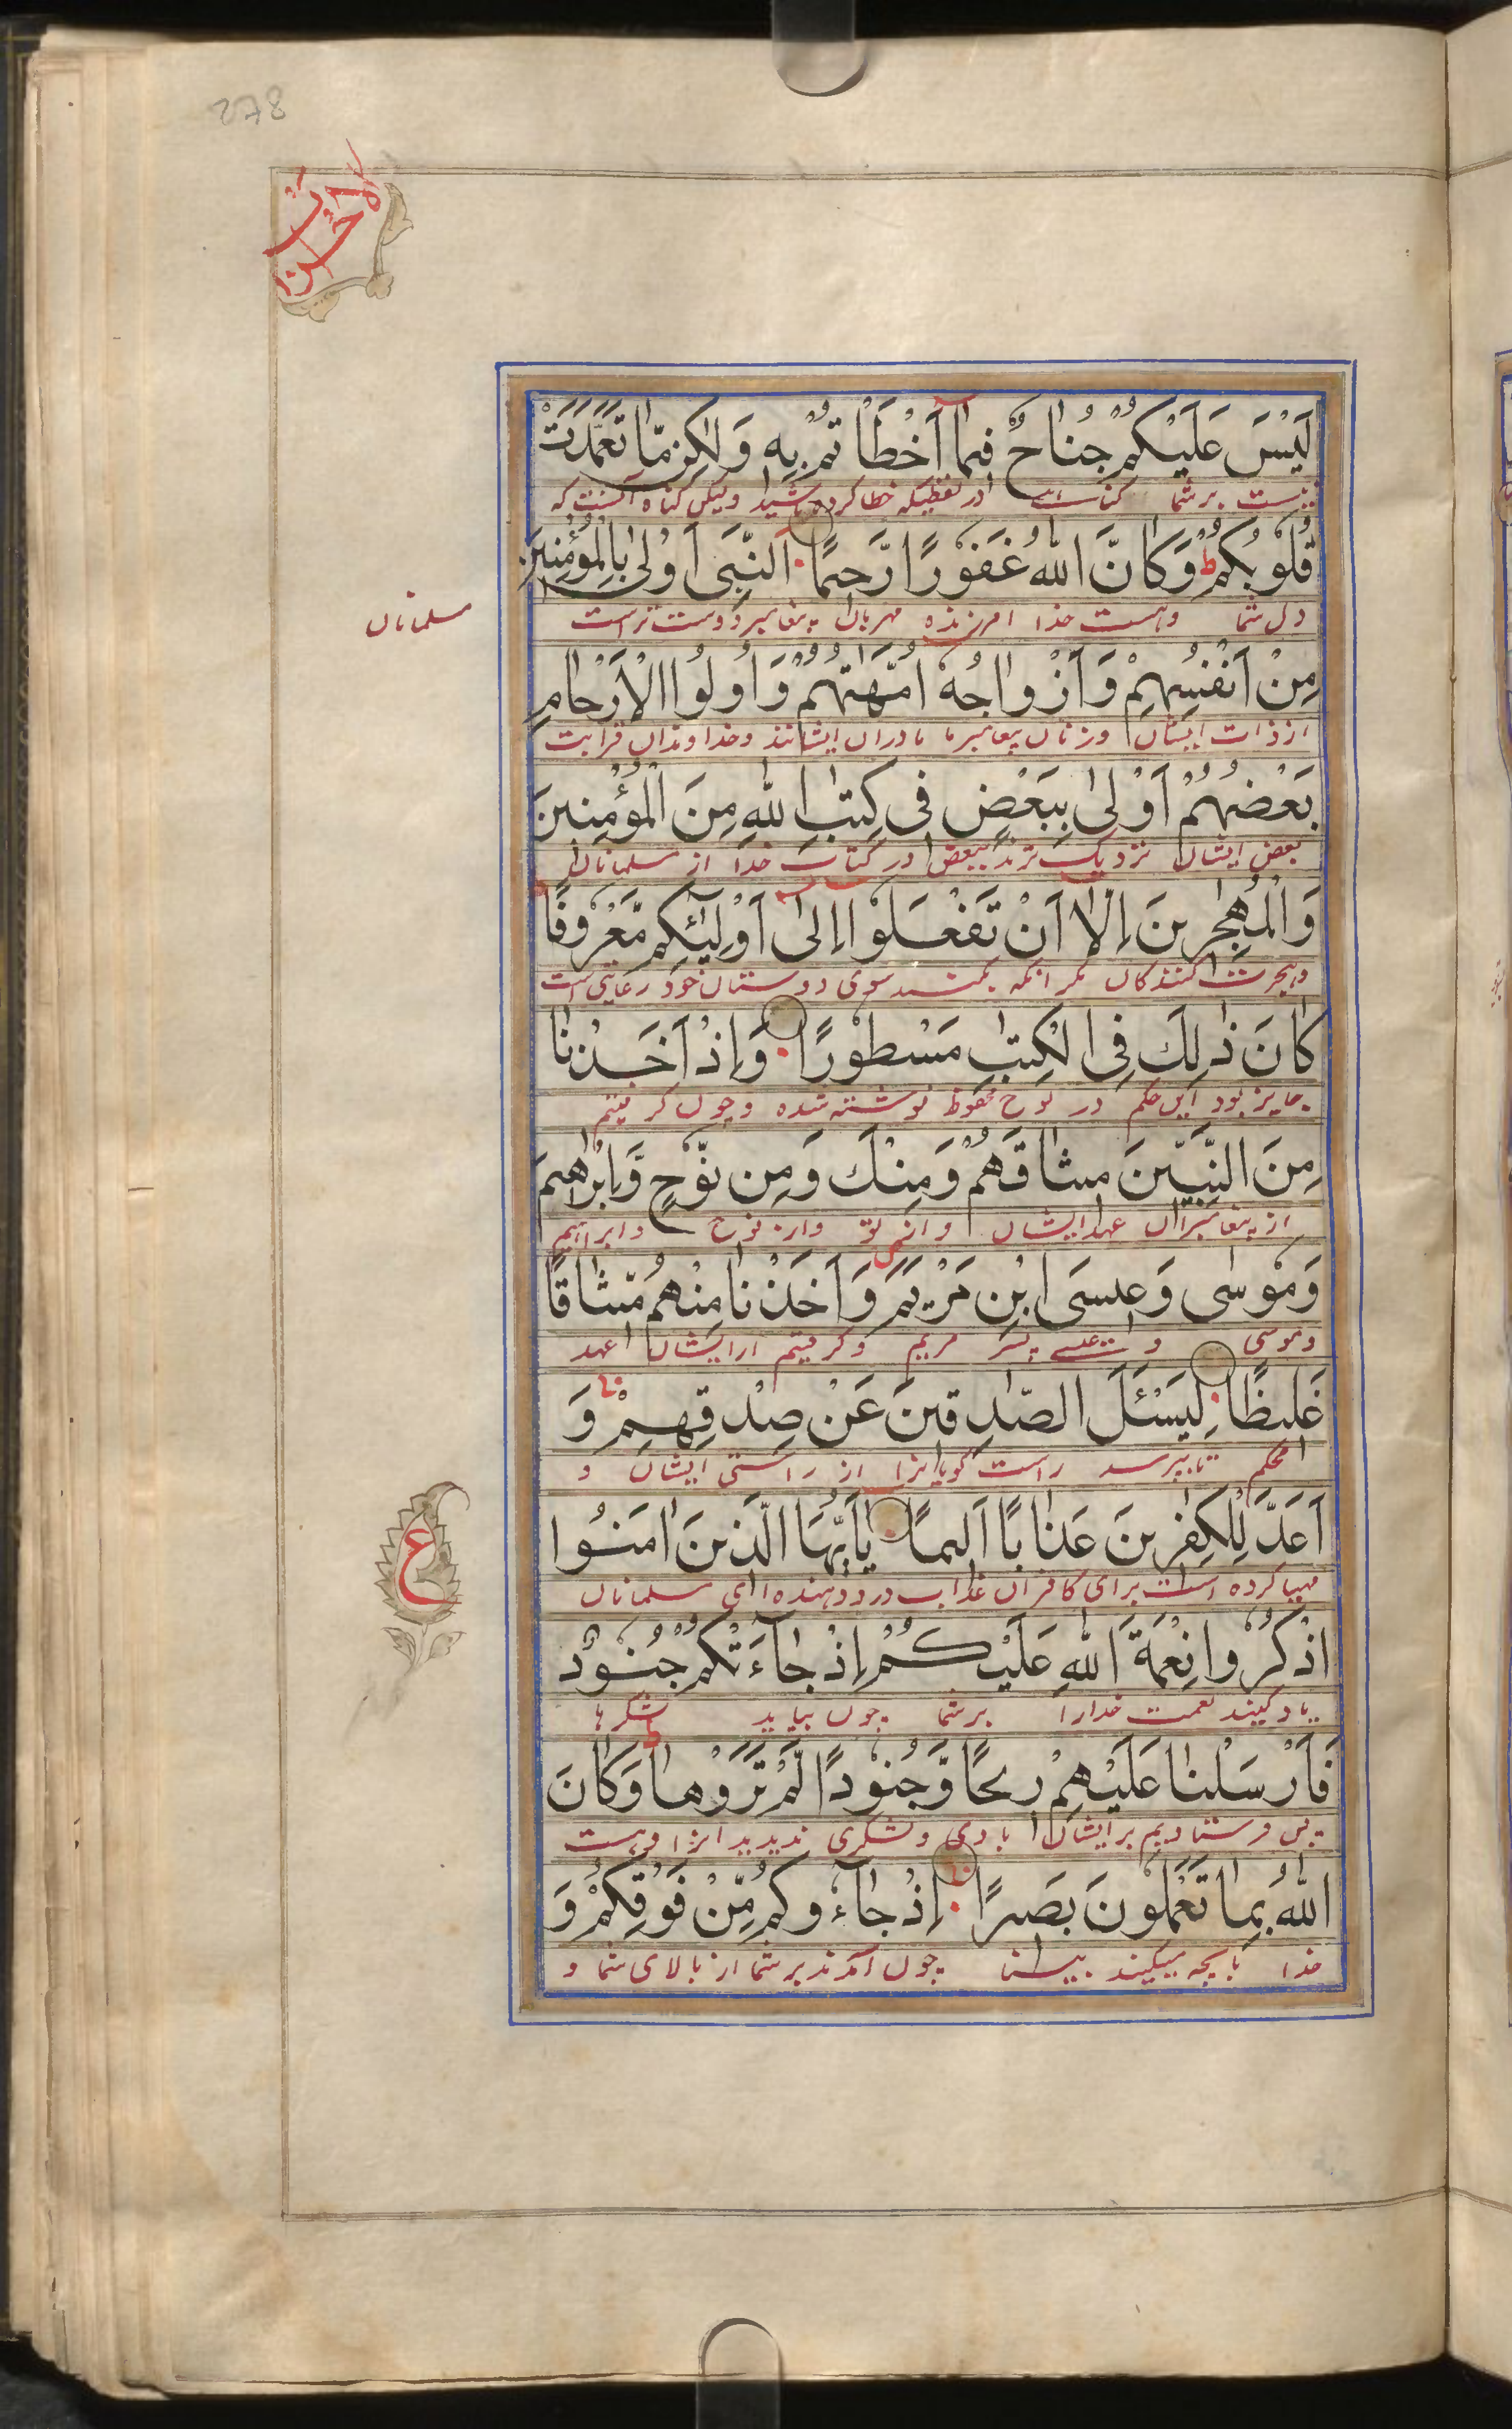 278
الاحزاب
لَيْسَ عَلَيْكُمْ جُنَاحٌ فِيمَا أَخْطَأْتُمْ بِهِ وَلٰكِنْ مَّا تَعَمَّدَتْ
نیست بر شما گناه در لفظیکه خطا کرده باشید ولیکن گناه آنست که
قُلُوبُكُمْ ط وَكَانَ اللّٰهُ غَفُورًا رَّحِيمًا اَلنَّبِيُّ أَوْلٰى بِالْمُؤْمِنِينَ
دل شما وهست خدا امرزنده مهربان پیغامبر دوست تر است
مسلمانان
مِنْ أَنْفُسِهِمْ وَأَزْوَاجُهُ أُمَّهٰتُهُمْ وَأُولُوا الْأَرْحَامِ
از ذات ایشان وزنان پیغامبر ما مادران ایشانند وخداوندان قرابت
بَعْضُهُمْ أَوْلٰى بِبَعْضٍ فِي كِتٰبِ اللّٰهِ مِنَ الْمُؤْمِنِينَ
بعض ایشان نزدیک ترند ببعض در کتاب خدا از مسلمانان
وَالْمُهٰجِرِينَ إِلَّا أَنْ تَفْعَلُوا إِلٰى أَوْلِيٰئِكُمْ مَّعْرُوفًا
وهجرت کنندگان مگر انکه بکنید سوی دوستان خود رعایتی است
كَانَ ذٰلِكَ فِي الْكِتٰبِ مَسْطُورًا وَإِذْ أَخَذْنَا
جایز بود این حکم در لوح محفوظ نوشته شده وچون گرفتیم
مِنَ النَّبِيّٖنَ مِيثَاقَهُمْ وَمِنْكَ وَمِنْ نُّوْحٍ وَّإِبْرٰهِيمَ
از پیغامبران عهد ایشان و از تو واز نوح و ابراهیم
وَمُوسٰى وَعِيسَى ابْنِ مَرْيَمَ وَأَخَذْنَا مِنْهُمْ مِّيثَاقًا
وموسی و عیسی پسر مریم وگرفتیم ازایشان عهد
غَلِيظًا لِيَسْئَلَ الصّٰدِقِينَ عَنْ صِدْقِهِمْ وَ
محکم تا بپرسد راست گویانرا از راستی ایشان و
أَعَدَّ لِلْكٰفِرِينَ عَذَابًا أَلِيمًا يَا أَيُّهَا الَّذِينَ اٰمَنُوا
مهیا کرده است برای کافران عذاب درد دهنده ای مسلمانان
ع
اذْكُرُوا نِعْمَةَ اللّٰهِ عَلَيْكُمْ إِذْ جَاءَتْكُمْ جُنُودٌ
یاد کنید نعمت خدارا بر شما چون بیاید لشکرها
فَأَرْسَلْنَا عَلَيْهِمْ رِيحًا وَّجُنُودًا لَّمْ تَرَوْهَا ط وَكَانَ
پس فرستادیم بر ایشان بادی ولشکری ندیدید انرا وهست
اللّٰهُ بِمَا تَعْمَلُونَ بَصِيرًا إِذْ جَاءُوكُمْ مِّنْ فَوْقِكُمْ وَ
خدا بانچه میکنید بینا چون آمدند بر شما از بالای شما و